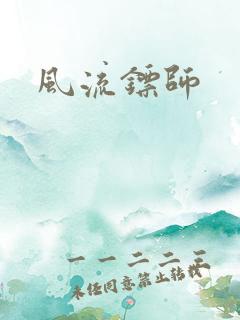 風流鏢師
一一二二三
未经同意禁止转载